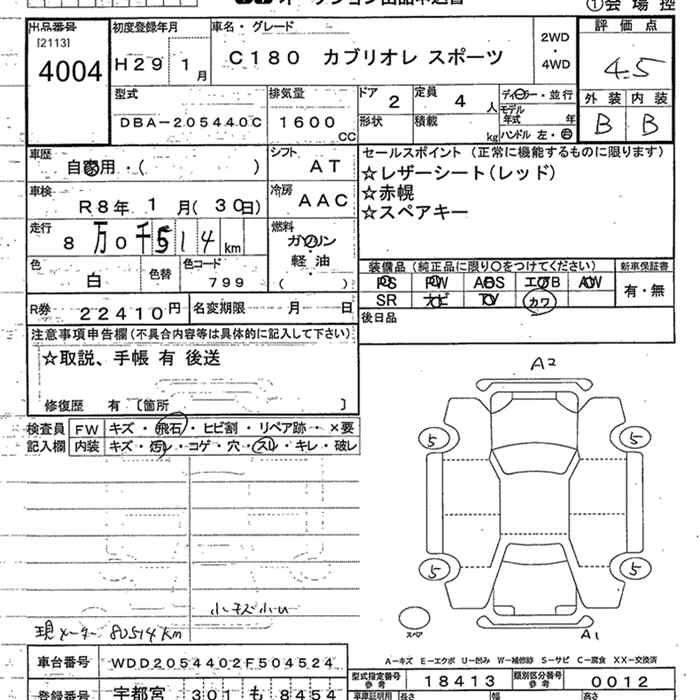 ①会場控
出品番号
[2113]
4004
初度登録年月
H29 1月
車名・グレード
C180 カブリオレ スポーツ
2WD
・
4WD
評価点
4.5
外装 内装
B B
型式
DBA-205440C
排気量
1600
CC
ドア
2
定員
4人
形状
積載
kg
ディーラー・並行
モデル
年式 年
ハンドル 左・右
車歴
自家用・( )
シフト
AT
車検
R8年 1月(30日)
冷房
AAC
走行
8万0千514km
燃料
ガソリン
軽・油
( )
色
白
色替
色コード
799
セールスポイント(正常に機能するものに限ります)
☆レザーシート(レッド)
☆赤幌
☆スペアキー
装備品(純正品に限り〇をつけてください)
PS PW ABS エアB AW
SR ナビ TV カワ
新車保証書
有・無
後日品
R券
22410円
名変期限 月 日
注意事項申告欄(不具合内容等は具体的に記入して下さい)
☆取説、手帳 有 後送
修復歴 有〔箇所 〕
検査員
記入欄
FW キズ・飛石・ヒビ割・リペア跡・×要
内装 キズ・汚れ・コゲ・穴・スレ・キレ・破レ
A2
5 5
5 5
スペア
A1
現メーター 80514km
A-キズ E-エクボ U-凹み W-補修跡 S-サビ C-腐食 XX-交換済
車台番号
WDD2054402F504524
型式指定番号
参考
18413
類別区分番号
参考
0012
登録番号
宇都宮 301 も 8454
車庫証明用
長さ
幅
高さ